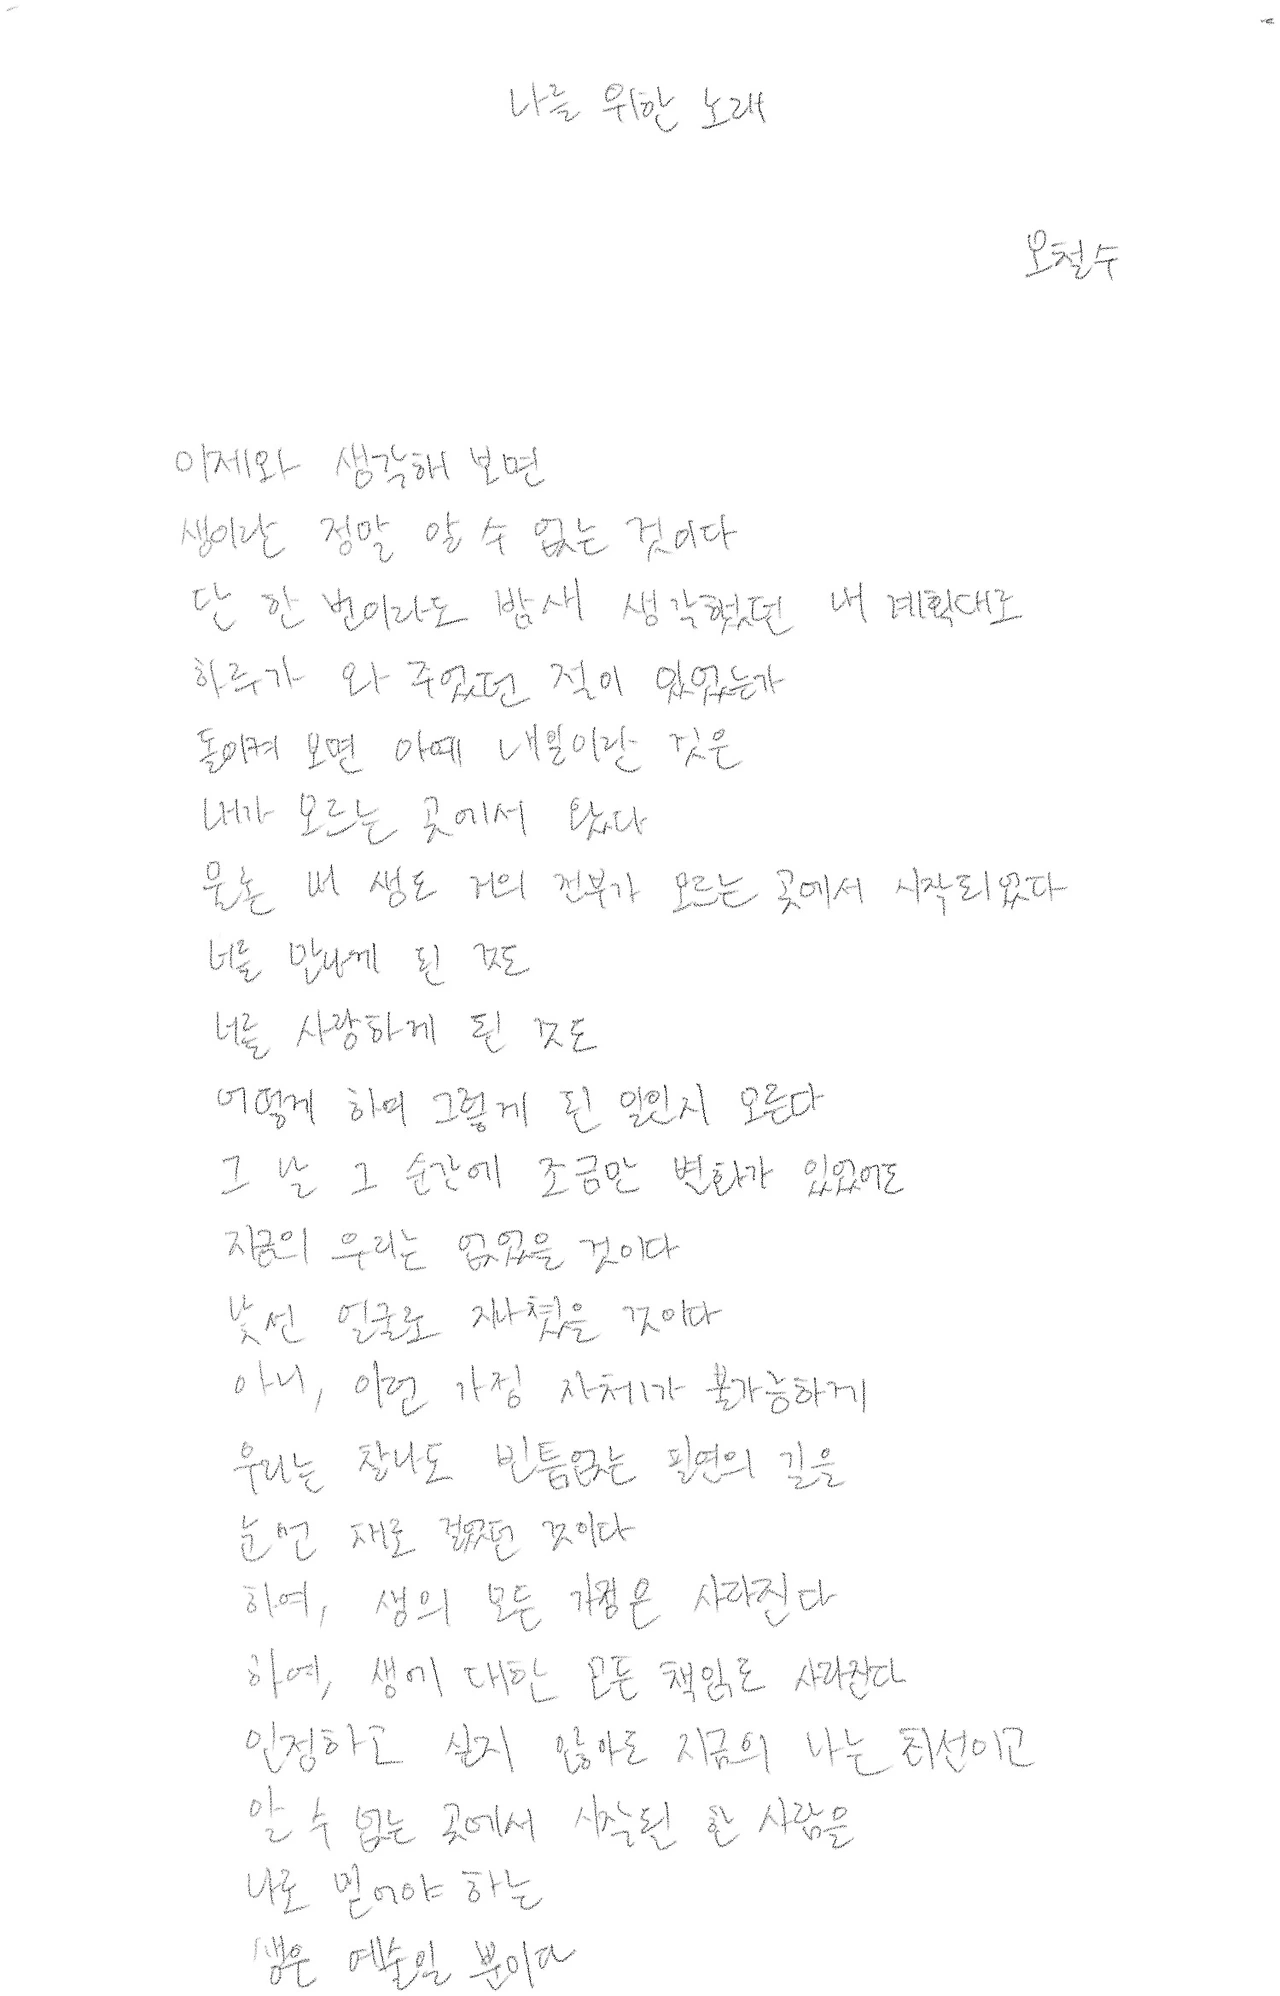 나를 위한 노래
오철수
이제와 생각해 보면
생이란 정말 알 수 없는 것이다
단 한 번이라도 밤새 생각했던 내 계획대로
하루가 와 주었던 적이 있었는가
돌이켜 보면 아예 내일이란 것은
내가 모르는 곳에서 왔다
물론 내 생도 거의 전부가 모르는 곳에서 시작되었다
너를 만나게 된 것도
너를 사랑하게 된 것도
어떻게 하여 그렇게 된 일인지 모른다
그 날 그 순간에 조금만 변화가 있었어도
지금의 우리는 없었을 것이다
낯선 얼굴로 지나쳤을 것이다
아니, 이런 가정 자체가 불가능하게
우리는 찰나도 빈틈없는 필연의 길을
눈먼 채로 걸었던 것이다
하여, 생의 모든 가정은 사라진다
하여, 생에 대한 모든 책임도 사라진다
인정하고 싶지 않아도 지금의 나는 최선이고
알 수 없는 곳에서 시작된 한 사람을
나로 믿어야 하는
생은 예술일 뿐이다